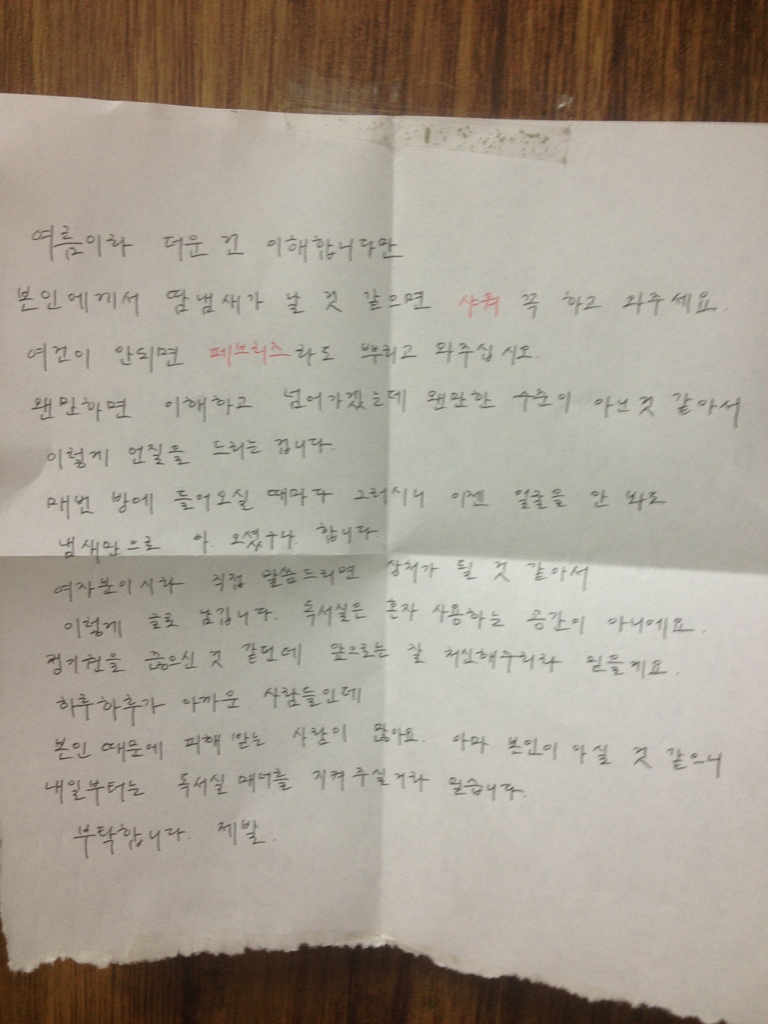 여름이라 더운 건 이해합니다만
본인에게서 땀냄새가 날 것 같으면 샤워 꼭 하고 와주세요.
여건이 안되면 페브리즈라도 뿌리고 와주십시오.
왠만하면 이해하고 넘어가겠는데 왠만한 수준이 아닌것 같아서
이렇게 언질을 드리는 겁니다.
매번 방에 들어오실 때마다 그러시니 이젠 얼굴을 안 봐도
냄새만으로 아. 오셨구나. 합니다.
여자분이시라 직접 말씀드리면 상처가 될 것 같아서
이렇게 글로 남깁니다. 독서실은 혼자 사용하는 공간이 아니에요.
정기권을 끊으신 것 같던데 앞으로는 잘 처신해주리라 믿을게요.
하루하루가 아까운 사람들인데
본인 때문에 피해 받는 사람이 많아요. 아마 본인이 아실 것 같으니
내일부터는 독서실 매너를 지켜주실거라 믿습니다.
부탁합니다. 제발.